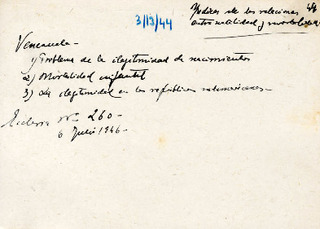 3/13/44
de las relaciones
Venezuela -
1) Problema de la ilegitimidad de nacimientos
2) Mortalidad infantil
3) La ilegitimidad en las repúblicas
Nº 260 -
6 Julio 1946 -